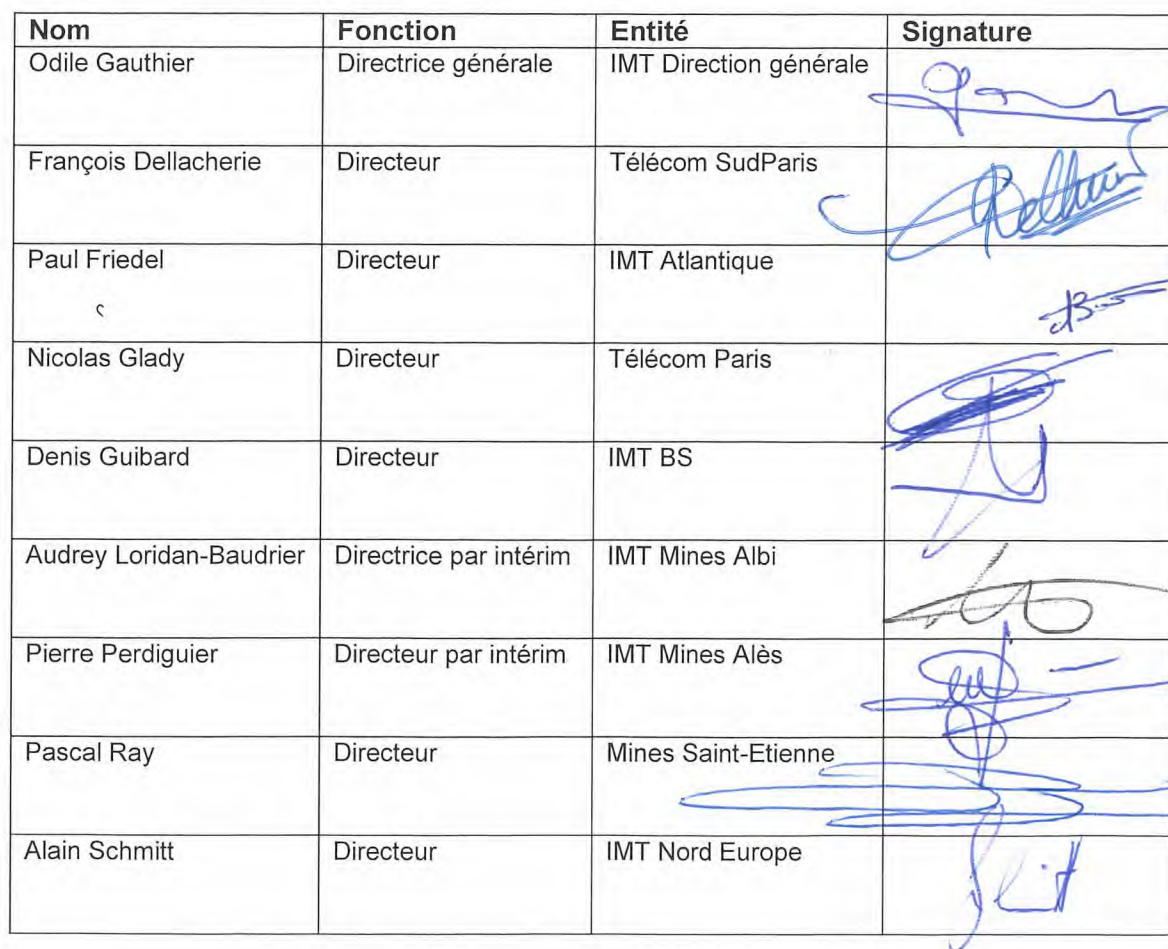 Nom Fonction Entité Signature
Odile Gauthier Directrice générale IMT Direction générale
François Dellacherie Directeur Télécom SudParis
Paul Friedel Directeur IMT Atlantique
Nicolas Glady Directeur Télécom Paris
Denis Guibard Directeur IMT BS
Audrey Loridan-Baudrier Directrice par intérim IMT Mines Albi
Pierre Perdiguier Directeur par intérim IMT Mines Alès
Pascal Ray Directeur Mines Saint-Etienne
Alain Schmitt Directeur IMT Nord Europe